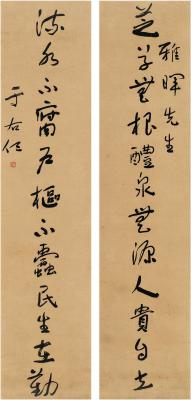 雅暉先生
芝草無根醴泉無源人貴自立
流水不腐戶樞不蠹民生在勤
于右任